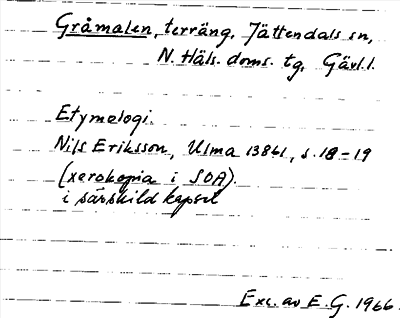 Gråmalen, terräng, Jättendals sn,
N. Häls. doms. tg, Gävl. l.
Etymologi.
Nils Eriksson, Ulma 13861, s. 18-19
(xerokopia i SOA).
i särskild kapsel
Exc. av E. G. 1966.